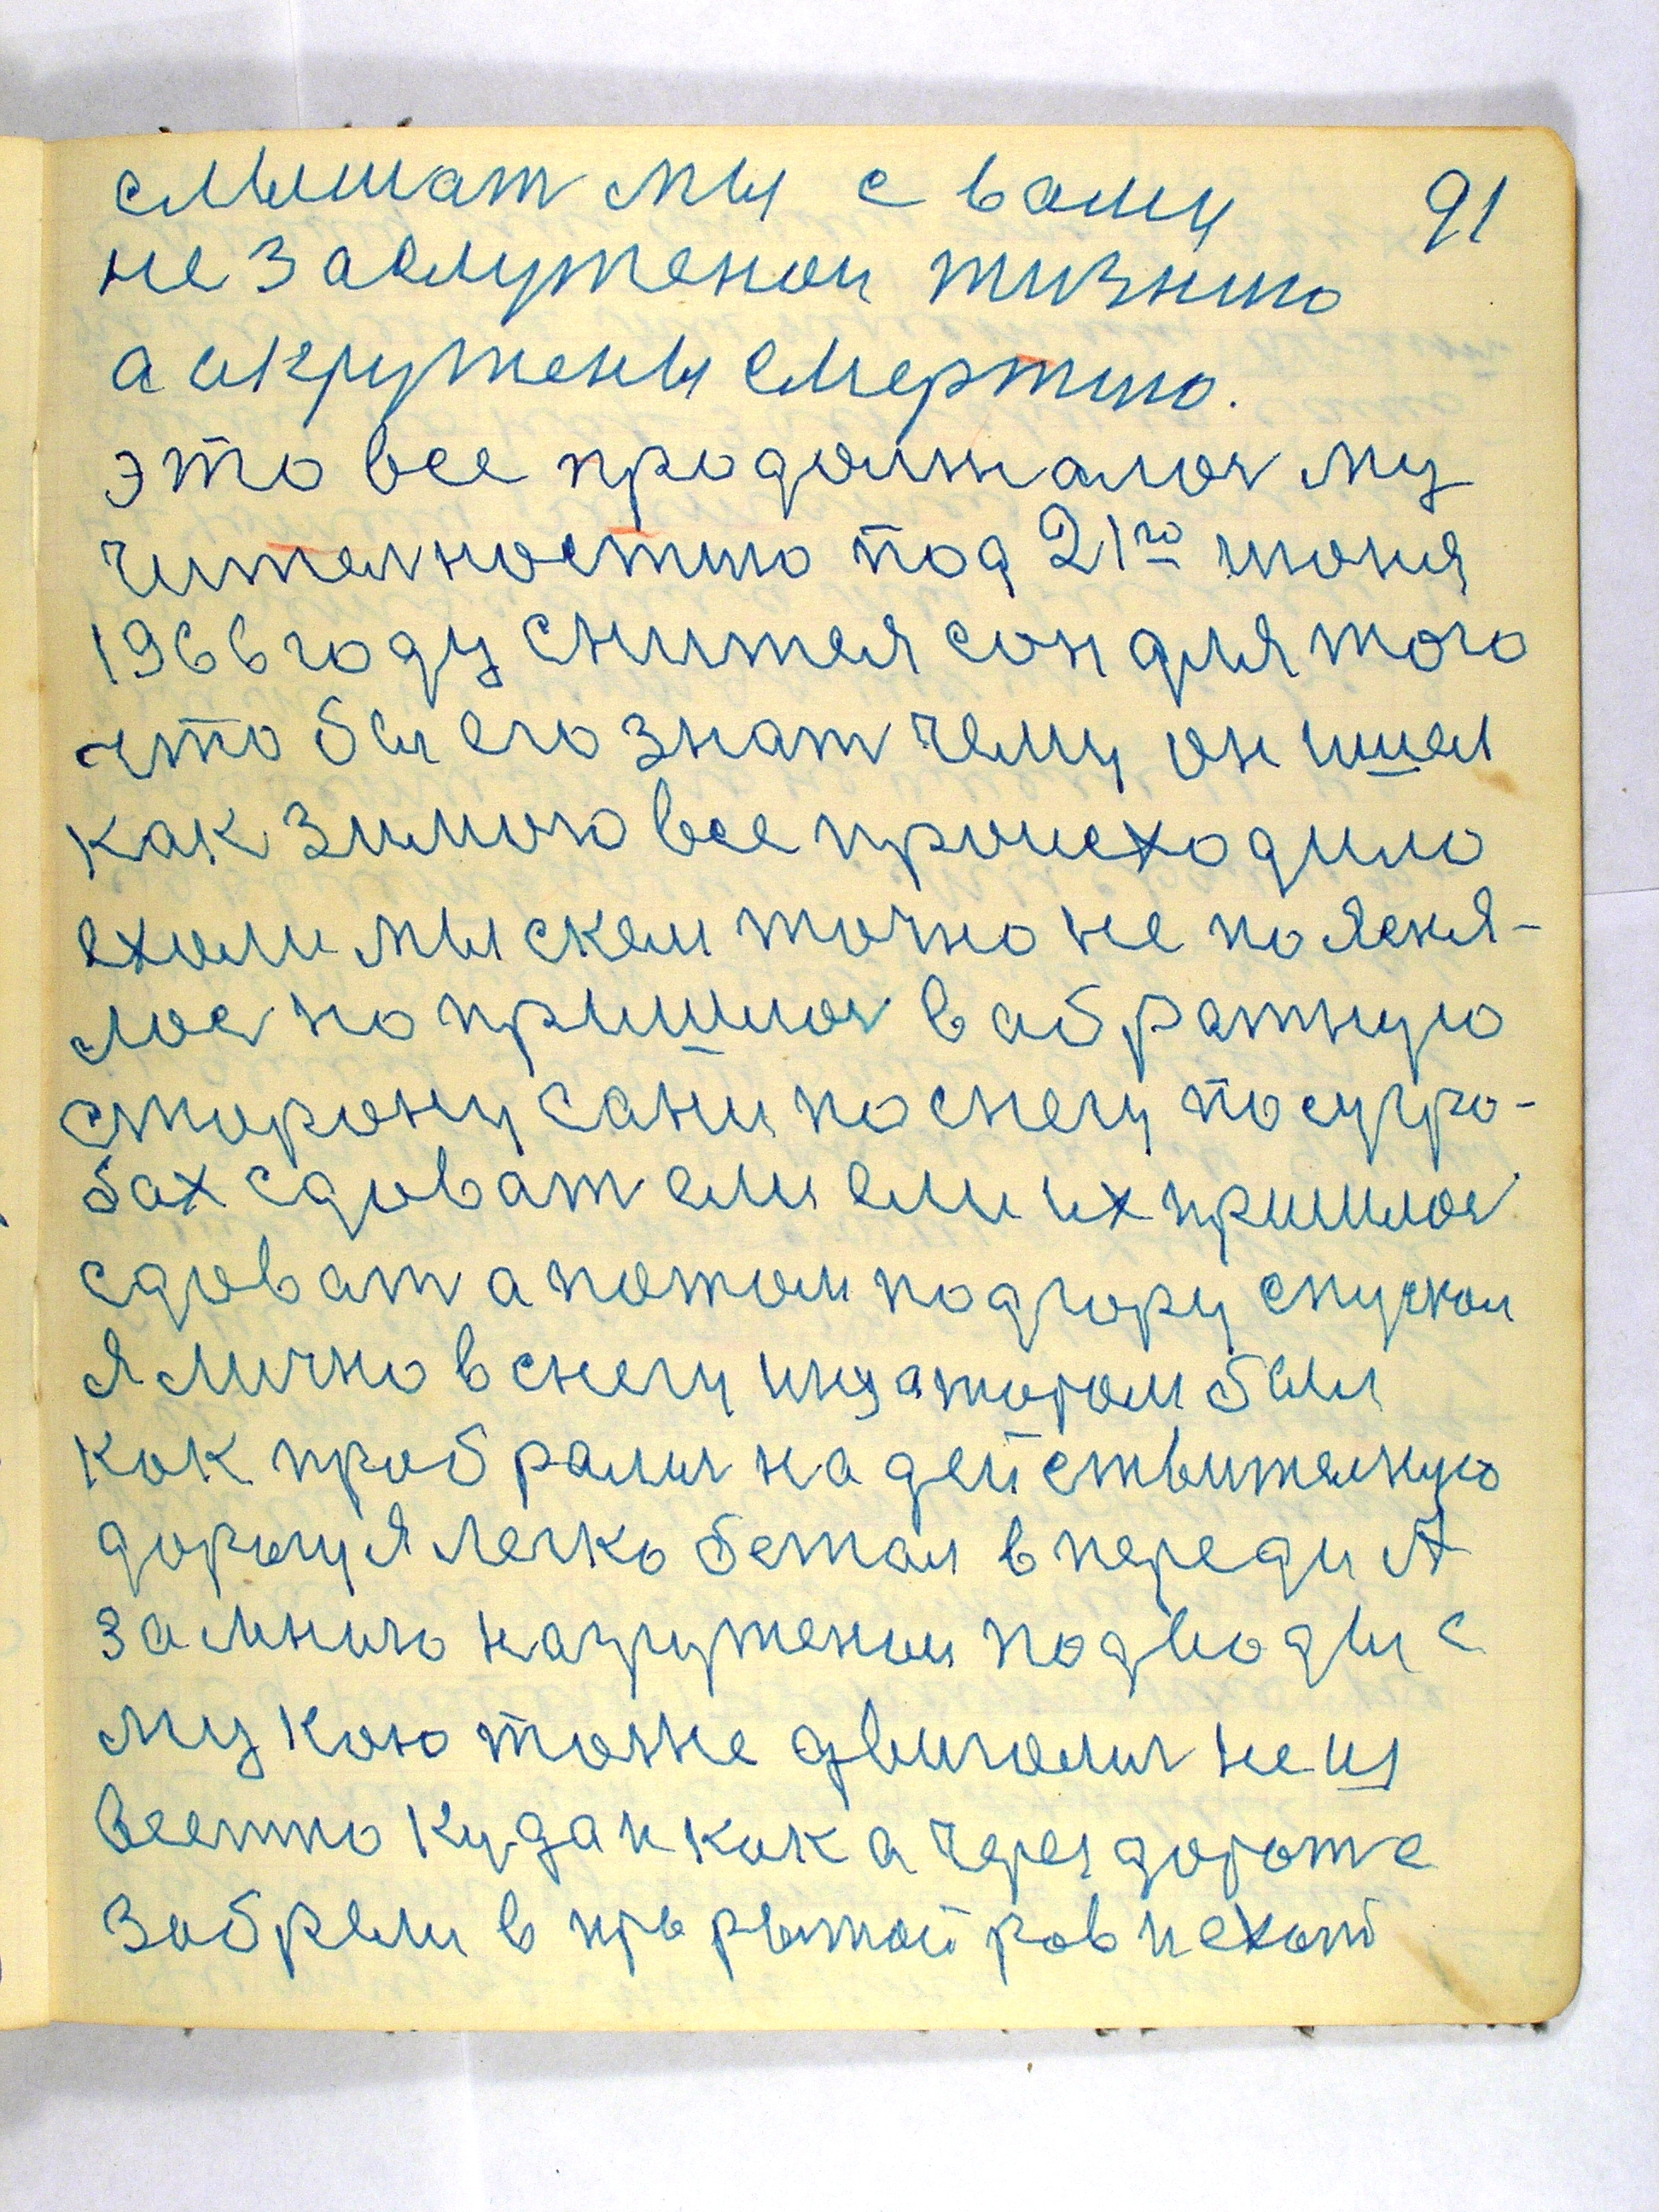 слышат мы с вами 91
не заслуженои жизнию
а акружены смертию.
это все продолжалос му
чителностию под 21го июня
1966 году снится сон для того
что бы его знат чему он ишел
как зимою все происходило
ехали мы скем точно не поясня-
лос но пришлос в абратную
сторону сани по снегу по сугро-
бах сдоват ели ели их пришлос
сдоват а потом подгору спускал
я лично в снегу был
как пробралис на действителную
дорогу я легко бежал в переди А
замною нагруженыи подводы с
мукою тоже двигалис не из
весно куда и как а через дорогже
забрели в прорытой ров пехот